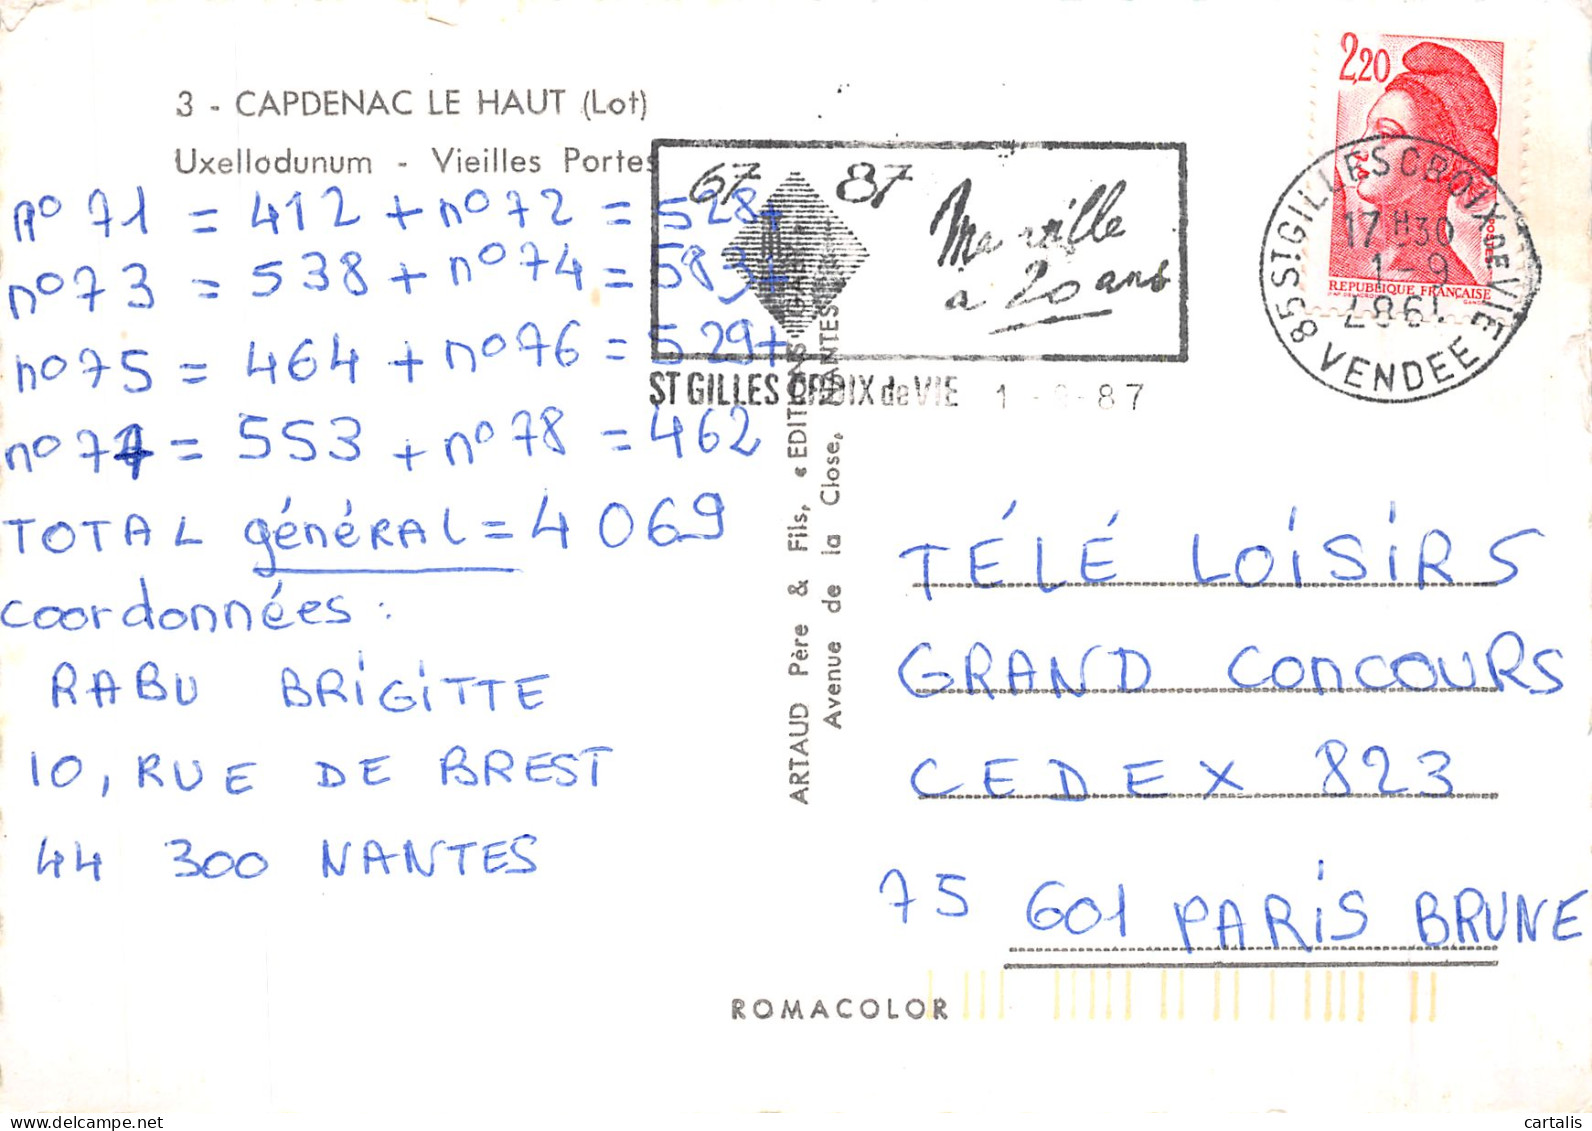 3 - CAPDENAC LE HAUT (Lot)
Uxellodunum - Vieilles Portes
n° 71 = 412 + n° 72 = 528 +
n° 73 = 538 + n° 74 = 583 +
n° 75 = 464 + n° 76 = 529 +
n° 77 = 553 + n° 78 = 462
TOTAL général = 4 069
coordonnées :
RABU BRIGITTE
10, RUE DE BREST
44 300 NANTES
67 87
Ma ville
a 20 ans
ST GILLES CROIX de VIE 1 - 9 - 87
2,20
POSTES
REPUBLIQUE FRANÇAISE
85 ST. GILLES CROIX DE VIE
17 H 30
1 - 9
1987
VENDEE
ARTAUD Père & Fils, « EDITIONS GABY »
Avenue de la Close, NANTES
TÉLÉ LOISIRS
GRAND CONCOURS
CEDEX 823
75 601 PARIS BRUNE
ROMACOLOR
cartalis